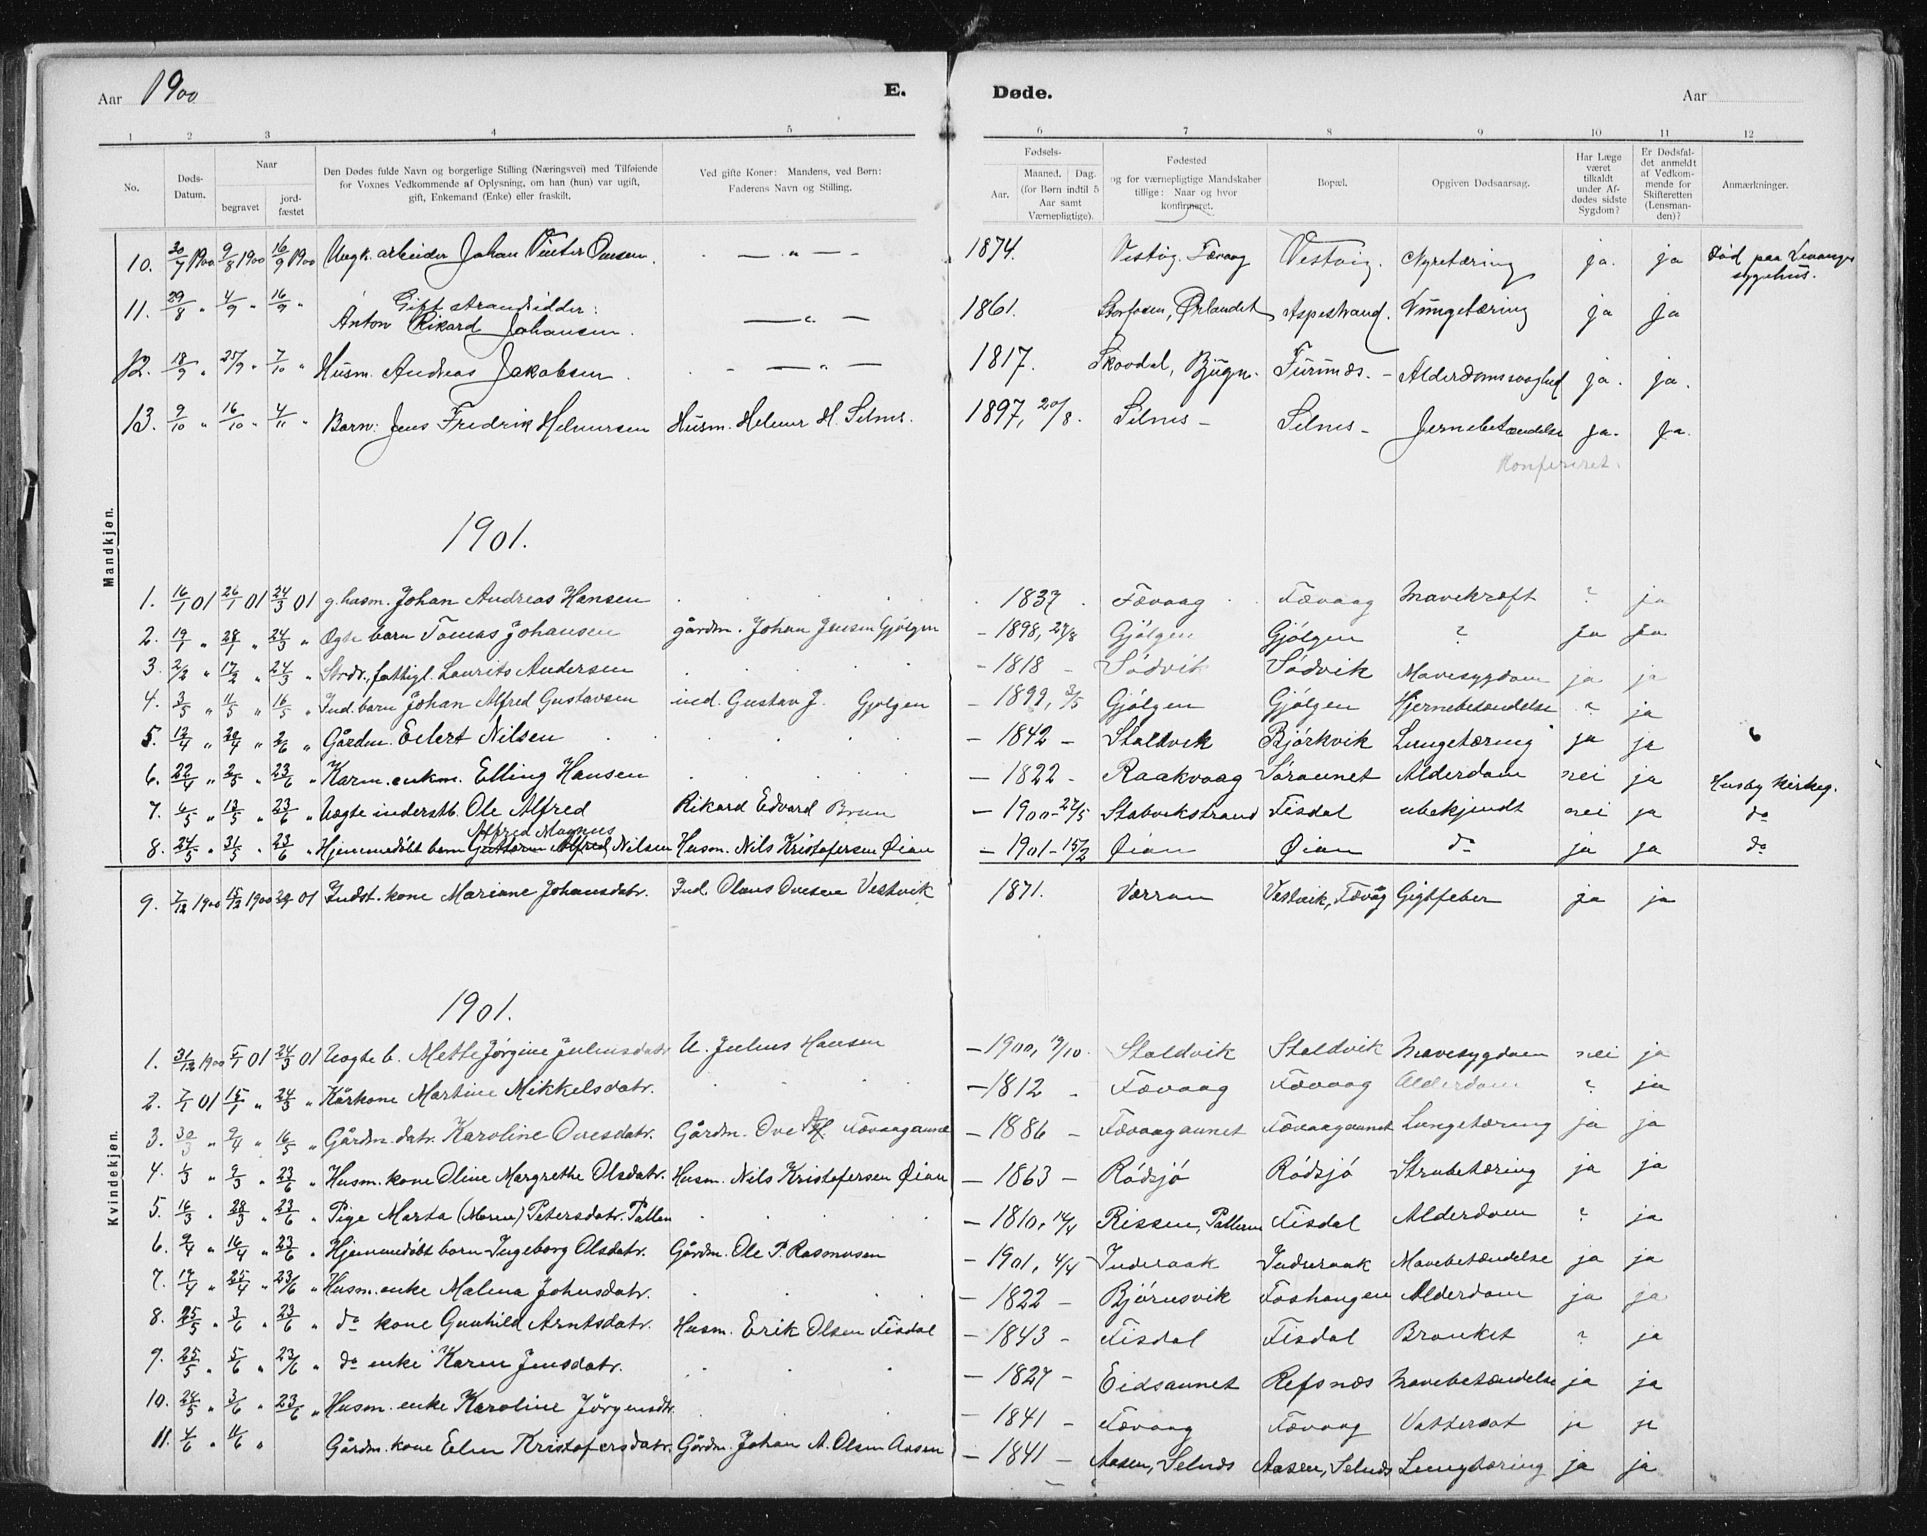 Aar 1900 E. Døde. Aar
1 2 3 4 5 6 7 8 9 10 11 12
No. Døds-Datum. Naar begravet jordfæstet Den Dødes fulde Navn og borgerlige Stilling (Næringsvei) med Tilføiende for Voxnes Vedkommende af Oplysning, om han (hun) var ugift, gift, Enkemand (Enke) eller fraskilt. Ved gifte Koner: Mandens, ved Børn: Faderens Navn og Stilling. Fødsels- Aar. Maaned. Dag. (for Børn indtil 5 Aar samt Værnepligtige). Fødested og for værnepligtige Mandskaber tillige: Naar og hvor konfirmeret. Bopæl. Opgiven Dødsaarsag. Har Læge været tilkaldt under Afdødes sidste Sygdom? Er Dødsfaldet anmeldt af Vedkommende for Skifteretten (Lensmanden)? Anmærkninger.
Mandkjøn.
10. 30/7 1900 9/8 1900 16/9 1900 Ungk. arbeider Johan Ovesen. — „ — 1874. Vestvig. Fævaag Vestvig. Nyretæring ja. ja Død paa Levanger sygehus.
11. 29/8 „ 4/9 „ 16/9 „ Gift strandsidder: Anton Rikard Johansen. — „ — 1861. Storfosen, Ørlandet Aspestrand. Lungetæring ja ja
12. 18/9 „ 25/9 „ 7/10 „ Husm. Andreas Jakobsen. — „ — 1817. Skovdal, Bjugn. Furunæs. - Alderdomssvaghed ja. ja.
13. 9/10 „ 16/10 „ 4/11 „ Barn: Jens Fredrik Helmersen Husm. Helmer H. Selnes. 1897, 20/8. Selnes - Selnes - Jernebetændelse ja. ja.
Konfereret.
1901.
1. 16/1 01 26/1 01 24/3 01 g. husm. Johan Andreas Hansen 1837 Fævaag Fævaag Mavekræft ? ja
2. 19/1 „ 28/1 „ 24/3 „ Ægte barn Tomas Johansen gårdm. Johan Jensen Gjølgen - 1898, 27/8 Gjølgen Gjølgen ? ja ja
3. 2/2 „ 17/2 „ 24/3 „ Strdr., fattigl. Laurits Andersen - 1818 - Sødvik Sødvik Mavesygdom ja ja
4. 3/5 „ 11/5 „ 16/5 „ Ind. barn Johan Alfred Gustavsen ind. Gustav J. Gjølgen - 1899, 3/5 Gjølgen Gjølgen Hjernebetændelse ? ja
5. 12/4 „ 20/4 „ 2/6 „ Gårdm. Eilert Nilsen - 1842 - Staldvik Bjørkvik Lungetæring ja ja
6. 22/4 „ 2/5 „ 23/6 „ Karm. enkm. Elling Hansen - 1822 - Raakvaag Søraunet Alderdom nei ja Husby kirkeg.
7. 6/5 „ 13/5 „ 23/6 „ Uægte inderstb. Ole Alfred Rikard Edvard Brun - 1900 - 27/5 Fisdal ubekjendt nei ja do
8. 24/5 „ 31/5 „ 23/6 „ Hjemmedøbt barn Guttorm Alfred Alfred Magnus Nilsen Husm. Nils Kristofersen Øian - 1901 - 15/2 Øian Øian do ja ja do
9. 7/12 1900 15/12 1900 01 Indst. kone Mariane Johansdatr. Ind. Olaus Ovesen Vestvik 1871. Værran Vestvik, Fævåg Gigtfeber ja ja
Kvindekjøn.
1901.
1. 31/12 1900 5/1 01 24/3 01 Uægte b. Mette Jørgine Juliusdatr U. Julius Hansen - 1900, 19/10. Staldvik Staldvik Mavesygdom nei ja
2. 7/1 01 15/1 „ 24/3 „ Kårkone Martine Mikkelsdatr. - 1812 - Fævaag Fævaag Alderdom ? ja
3. 30/3 „ 9/4 „ 16/5 „ Gårdm. datr. Karoline Ovesdatr. Gårdm. Ove Fævaagaunet - 1886 - Fævaagaunet Fævaagaunet Lungetæring ja ja
4. „ „ 23/6 „ Husm. kone Oline Margrethe Olsdatr. Husm. Nils Kristofersen Øian - 1863 - Rødsjø Rødsjø Strubetæring ja ja
5. 16/3 „ 28/3 „ 23/6 „ Pige Marta (Maren) Petersdatr. - 1810, 14/4 Rissen, Fisdal Alderdom ? ja
6. 9/4 „ 16/4 „ 23/6 „ Hjemmedøbt barn Ingeborg Olsdatr. Gårdm. Ole P. Rasmusen - 1901, 4/4 Inderaak Inderaak Mavebetændelse ja ja
7. 17/4 „ 25/4 „ 23/6 „ Husm. enke Malena Johnsdatr. - 1822 - Bjørnsvik Foshaugen Alderdom ja ja
8. 25/5 „ 3/6 „ 23/6 „ do kone Gunhild Arntsdatr. Husm. Erik Olsen Fisdal - 1843 - Fisdal Fisdal Bronket ? ja
9. 25/5 „ 5/6 „ 23/6 „ do enke Karen Jensdatr. - 1827 - Eidsaunet Refsnæs Mavebetændelse ja ja
10. 24/5 „ 3/6 „ 23/6 „ Husm. enke Karoline Jørgensdtr. - 1841 - Fævaag Fævaag Vattersot ja ja
11. 4/6 „ 11/6 „ Gårdm. kone Elen Kristofersdatr. Gårdm. Johan A. Olsen Aasen - 1841 - Aasen, Selnæs Aasen, Selnæs Lungtæring ja ja